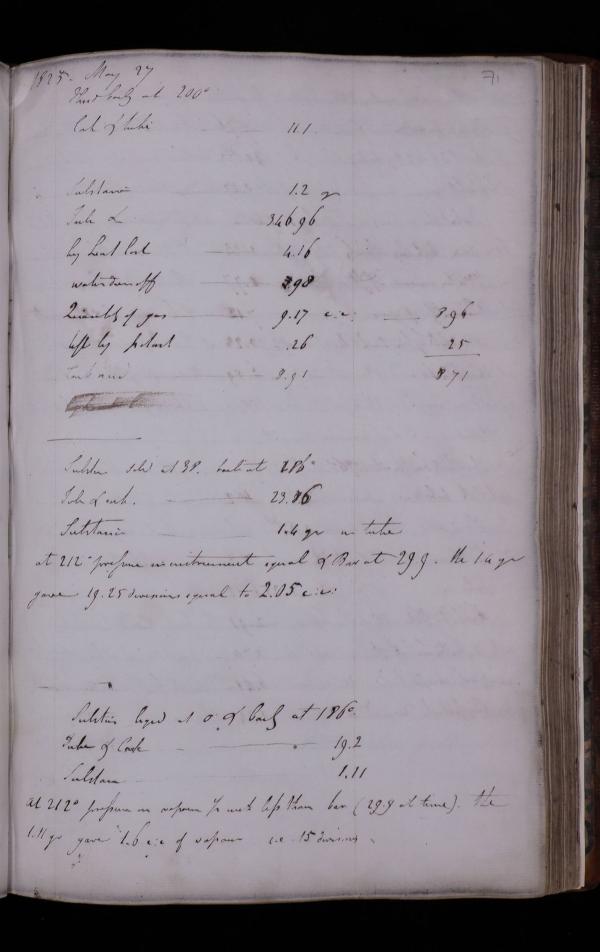 1825. May 27 71
Third body at 200°
Cork & tube 11.1
Substance 1.2 gr
Tube & 346.96
by heat lost 4.16
water driven off 3.98
Quantity of gas 9.17 c:i: 8.96
left by potash .26 25
8.91 8.71
Substance solid at 38. boils at 186°
Tube & cork. 23.86
Substance 1.4 gr in tube
at 212° pressure in instrument equal & Bar at 29.9. the 1.4 gr
gave 19.25 divisions equal to 2.05 c:i:
Substance liquid at 0 & boils at 186°
Tube & Cork 19.2
Substance 1.11
at 212° pressure in vapour inch less than bar (29.9 at time). the
1.11 gr gave 1.6 c:i: of vapour i.e. 15 divisions